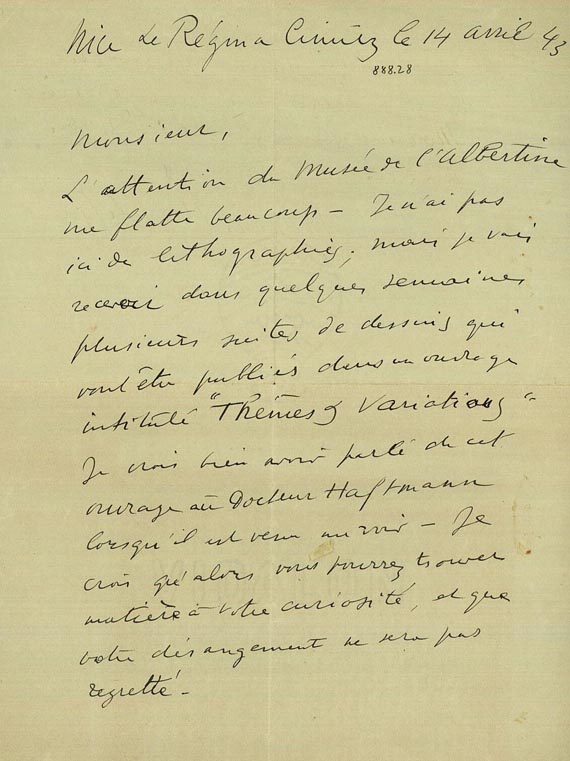 Nice Le Régina Cimiez le 14 avril 43
888.28
Monsieur,
L'attention du Musée de l'Albertine
me flatte beaucoup – Je n'ai pas
ici de lithographies, mais je vais
recevoir dans quelques semaines
plusieurs suites de dessins qui
vont être publiés dans un ouvrage
intitulé "Thèmes & Variations"
Je crois bien avoir parlé de cet
ouvrage au Docteur Haftmann
lorsqu'il est venu me voir – Je
crois qu'alors vous pourrez trouver
matière à votre curiosité, et que
votre dérangement ne sera pas
regretté –